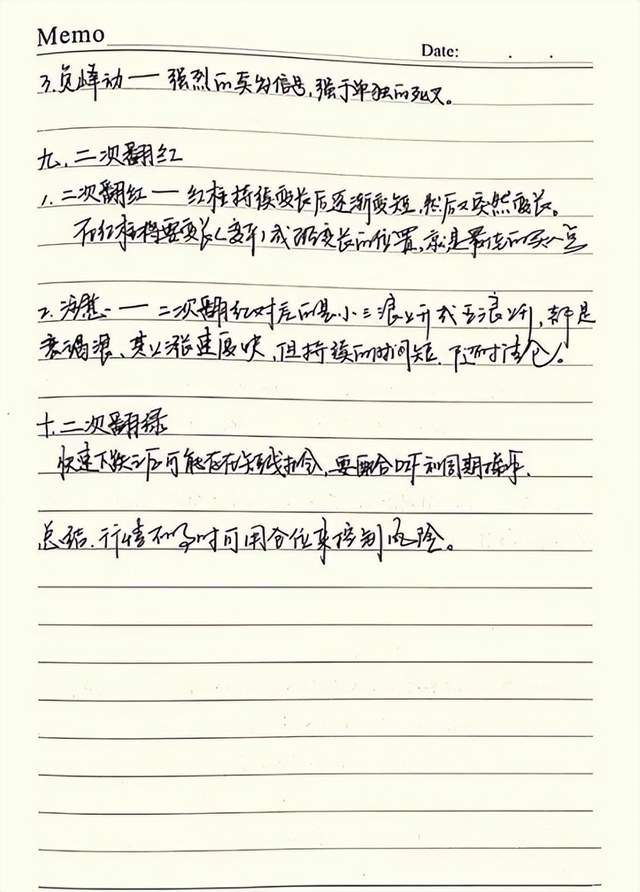 Memo
Date: . .
3.负峰动一强烈的卖出信号,强于单独的死叉。
九.二次翻红
1.二次翻红一红柱持续变长后逐渐变短,然后又突然变长。
在红柱将要变长(变平)或刚变长的位置,就是最佳的买入点
2.注意:一二次翻红对应的是小三浪上升或五浪上升,都是
衰竭浪、其上涨速度快,但持续的时间短.随时清仓。
十.二次翻绿
快速下跌之后可能存在短线机会,要配合 和周期操作.
总结.行情不 时可用仓位来控制风险。